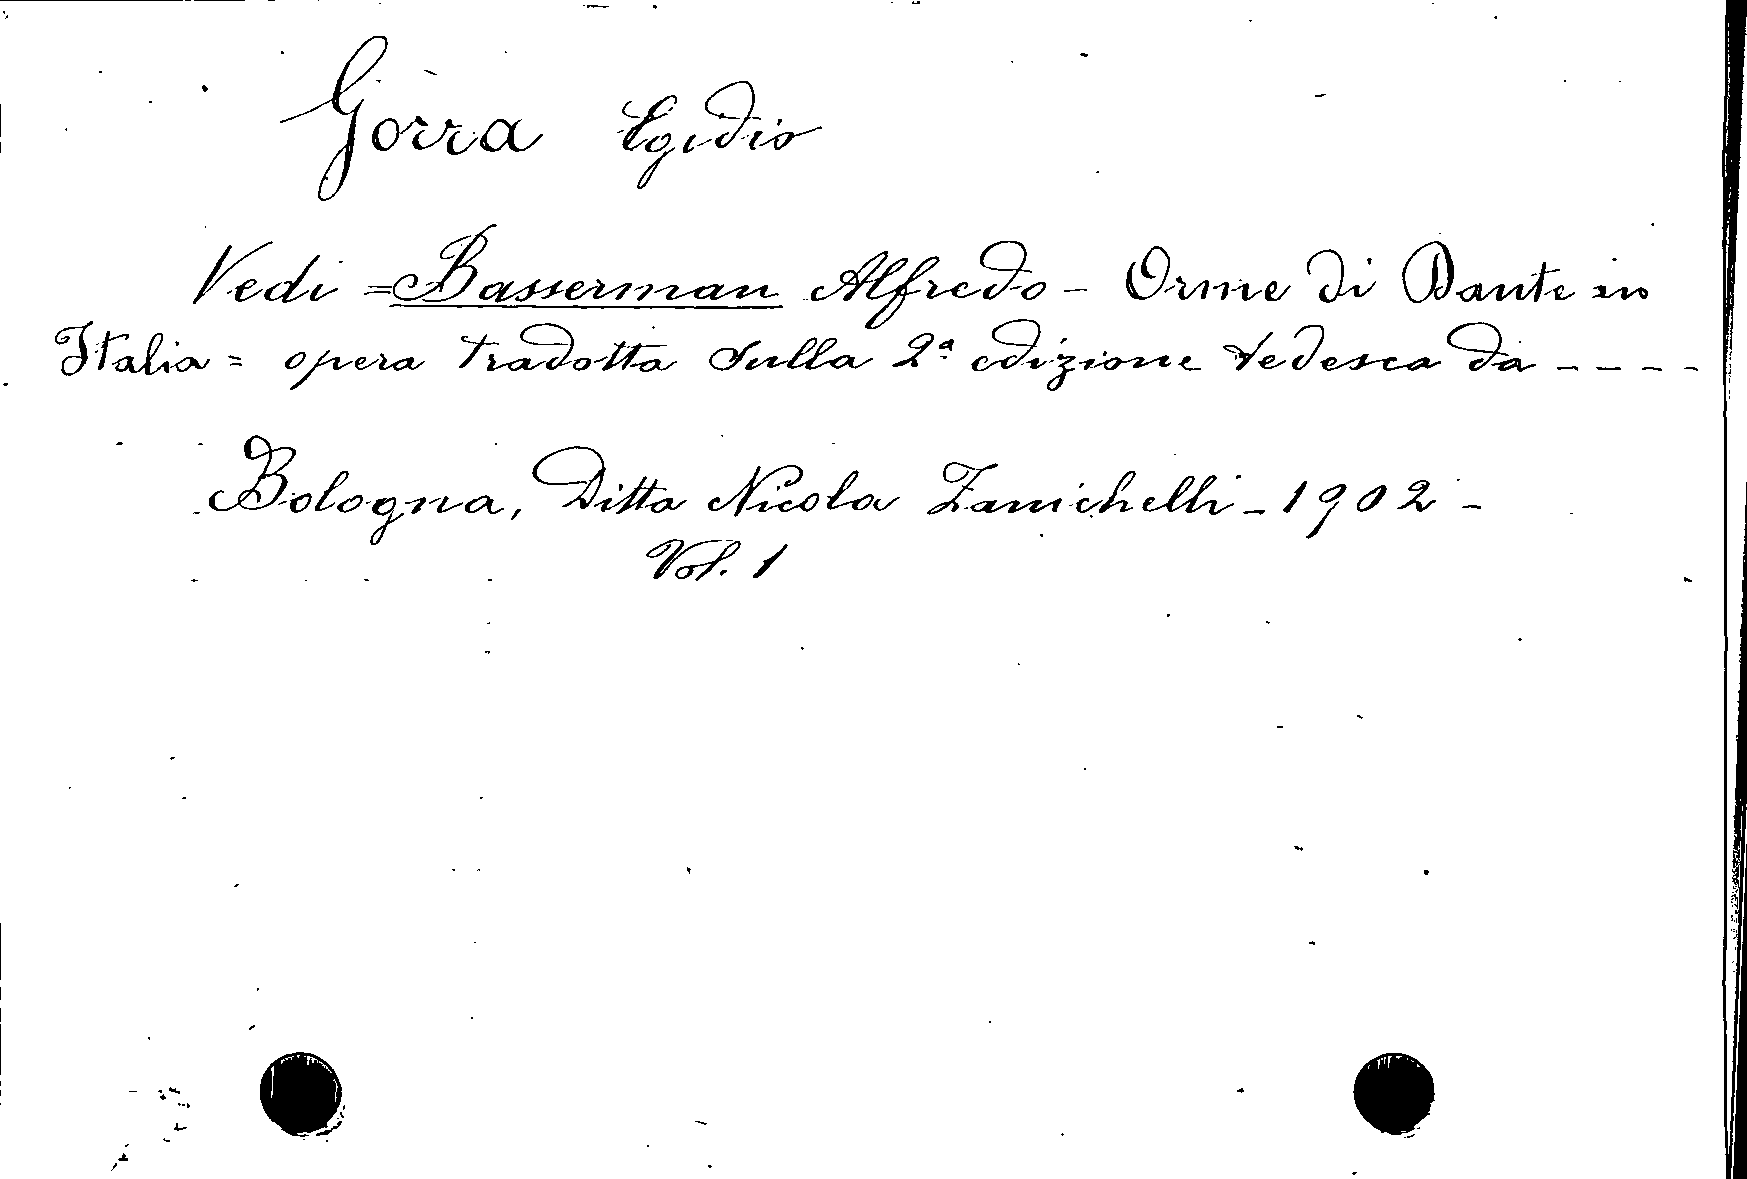 Gorra Egidio
Vedi = Basserman Alfredo - Orme di Dante in
Italia = opera tradotta sulla 2ª edizione tedesca da - - - -
Bologna, Ditta Nicola Zanichelli - 1902 -
Vol. 1